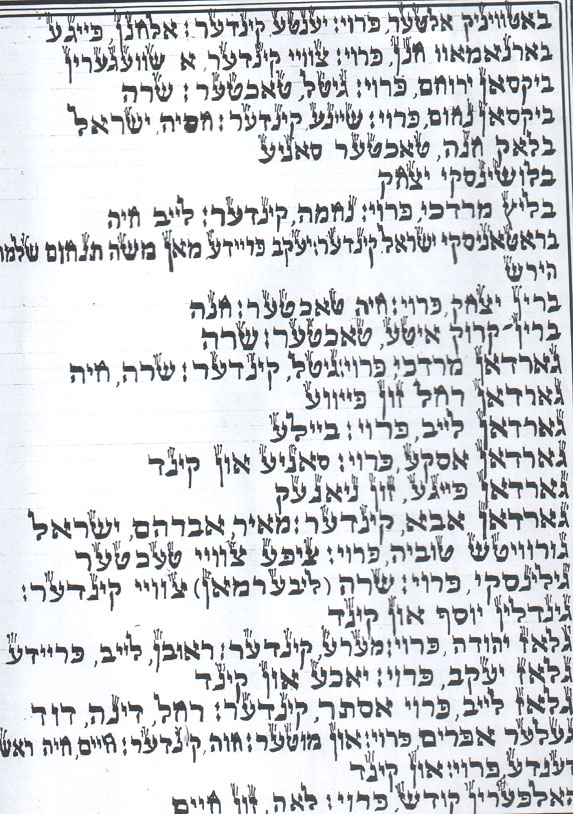 באטוויניק אלטער, פרוי: יענטע, קינדער: אלחנן, פייגע
בארנאמאוו חנן, פרוי: צוויי קינדער, א שוועגערין
ביקסאן ירוחם, פרוי: גיטל, טאכטער: שרה
ביקסאן נחום, פרוי: שיינע, קינדער: חסיה, ישראל
בלאק חנה, טאכטער סאניע
בלושינסקי יצחק
בליץ מרדכי, פרוי: נחמה, קינדער: לייב חיה
בראטאניסקי ישראל, קינדער: יעקב פריידע מאן משה תנחום שלמה
הירש
ברין יצחק, פרוי: חיה טאכטער: חנה
ברין-קרוק איטע, טאכטער: שרה
גארדאן מרדכי, פרוי: גיטל, קינדער: שרה, חיה
גארדאן רחל זון פייווע
גארדאן לייב, פרוי: ביילע
גארדאן אסקע, פרוי: סאניע און קינד
גארדאן פייגע, זון ניאנעק
גארדאן אבא, קינדער: מאיר, אברהם, ישראל
גורוויטש טוביה, פרוי: ציפע צוויי טעכטער
גילינסקי, פרוי: שרה (ליבערמאן) צוויי קינדער:
גינדלין יוסף און קינד
גלאז יהודה, פרוי: מערע, קינדער: ראובן, לייב, פריידע
גלאז יעקב, פרוי: יאכע און קינד
גלאז לייב, פרוי אסתר, קינדער: רחל, דינה, דוד
געלער אפרים, פרוי: און מוטער: חוה, קינדער: חיים, חיה ראש
דענדע, פרוי: און קינד
האלפערין קודש, פרוי: לאה, זון חיים